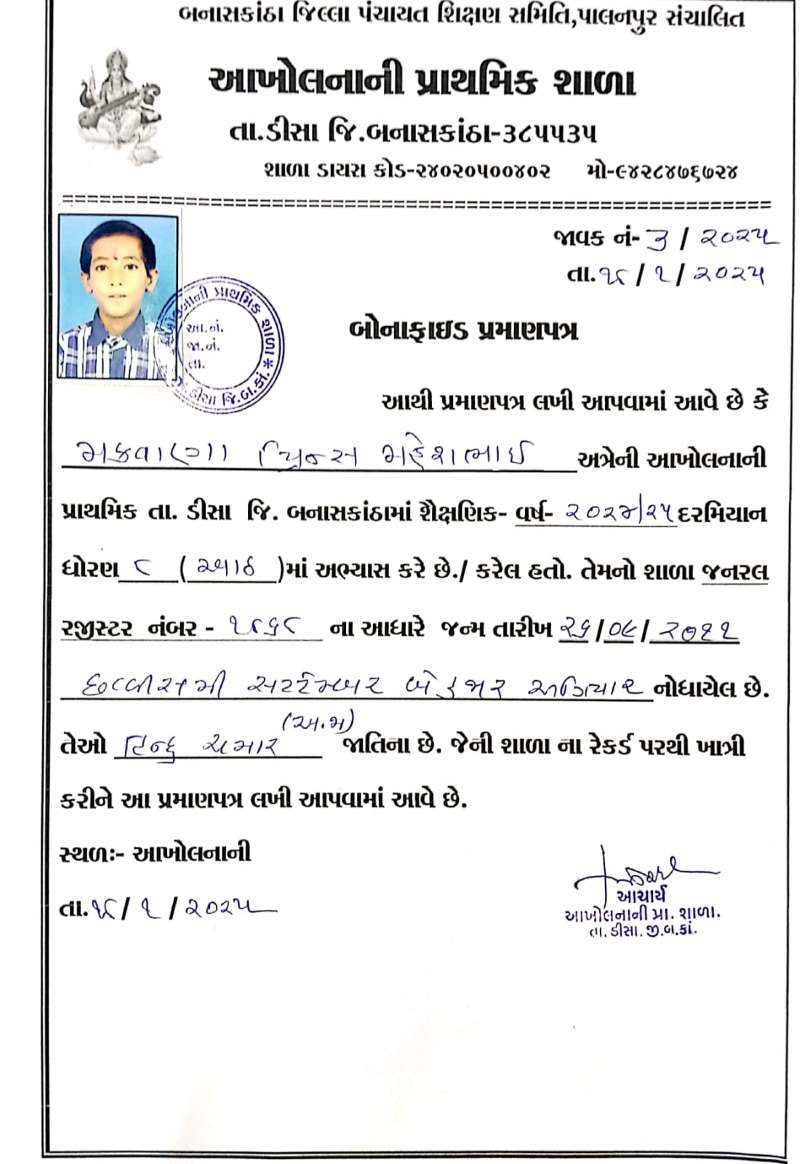 બનાસકાંઠા જિલ્લા પંચાયત શિક્ષણ સમિતિ,પાલનપુર સંચાલિત
આખોલનાની પ્રાથમિક શાળા
તા.ડીસા જિ.બનાસકાંઠા-૩૮૫૫૩૫
શાળા ડાયસ કોડ-૨૪૦૨૦૫૦૦૪૦૨ મો-૯૪૨૮૪૭૬૭૨૪
જાવક નં- ૩ / ૨૦૨૫
તા. / ૧ / ૨૦૨૫
આ.નં.
જા.નં.
તા.
બોનાફાઇડ પ્રમાણપત્ર
આથી પ્રમાણપત્ર લખી આપવામાં આવે છે કે
મકવાણા પ્રિન્સ મહેશભાઇ અત્રેની આખોલનાની
પ્રાથમિક તા. ડીસા જિ. બનાસકાંઠામાં શૈક્ષણિક- વર્ષ- ૨૦૨૪/૨૫ દરમિયાન
ધોરણ ૮ ( આઠ )માં અભ્યાસ કરે છે./ કરેલ હતો. તેમનો શાળા જનરલ
રજીસ્ટર નંબર - ના આધારે જન્મ તારીખ ૨૬/૦૯/૨૦૧૧
છવ્વીસમી સપ્ટેમ્બર બે હજાર અગિયાર નોધાયેલ છે.
(અ.જા)
તેઓ હિન્દુ ચમાર જાતિના છે. જેની શાળા ના રેકર્ડ પરથી ખાત્રી
કરીને આ પ્રમાણપત્ર લખી આપવામાં આવે છે.
સ્થળઃ- આખોલનાની
તા. / ૧ / ૨૦૨૫
આચાર્ય
આખોલનાની પ્રા. શાળા.
તા. ડીસા. જી.બ.કાં.